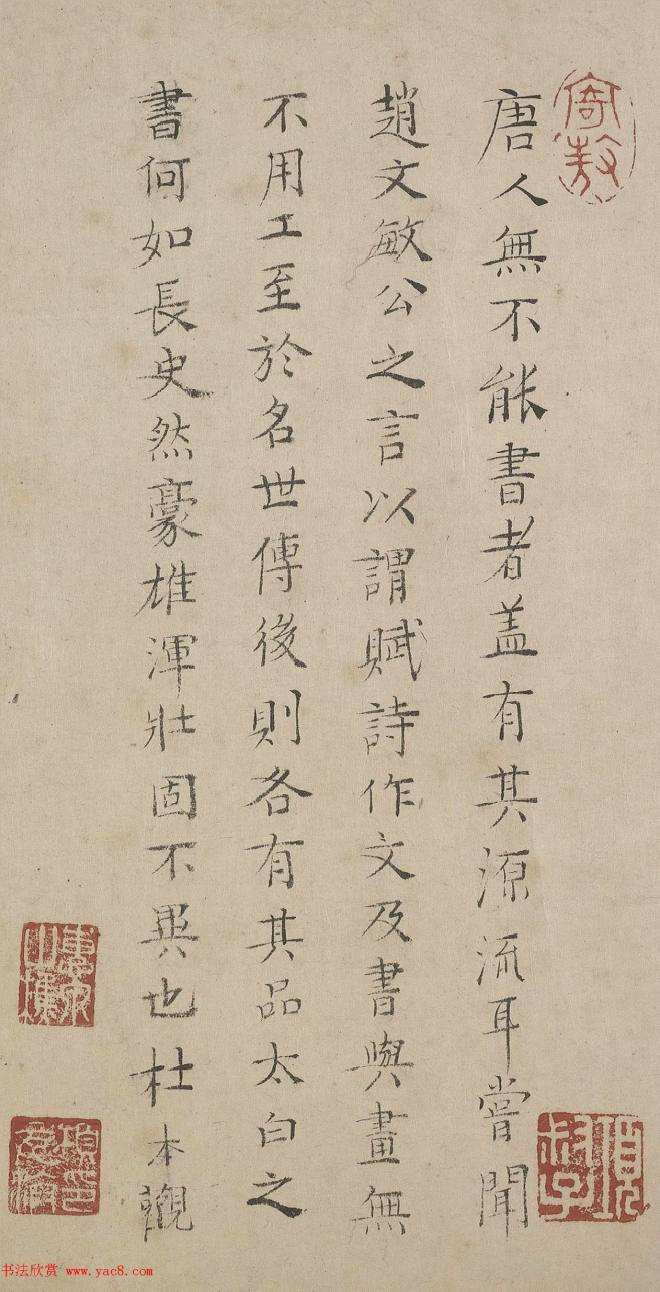 唐人無不能書者盖有其源流耳嘗聞
趙文敏公之言以謂賦詩作文及書與畫無
不用工至於名世傳後則各有其品太白之
書何如長史然豪雄渾壯固不異也杜本觀
书法欣赏 www.yac8.com